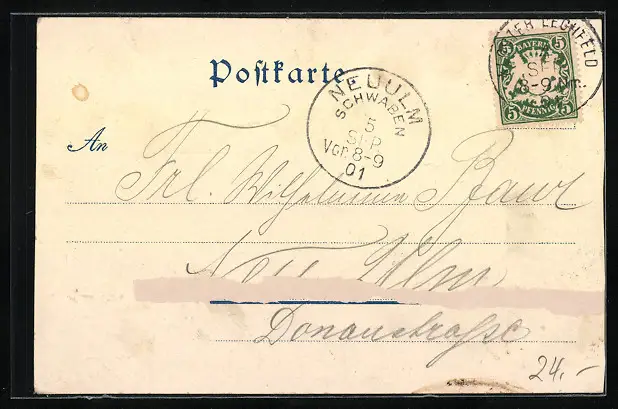 Postkarte.
NEUULM
SCHWABEN
5
SEP
Vor. 8-9
01
LECHFELD
SEP
8-9
5 BAYERN 5
5 PFENNIG 5
An
Frl. Wilhelmine
Neu Ulm
Donaustraße
24.-